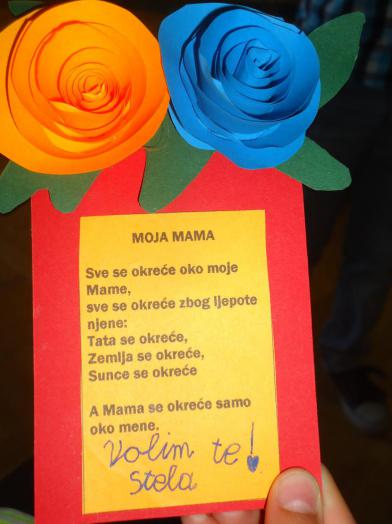 MOJA MAMA
Sve se okreće oko moje
Mame,
sve se okreće zbog ljepote
njene:
Tata se okreće,
Zemlja se okreće,
Sunce se okreće
A Mama se okreće samo
oko mene.
Volim te!
Stela